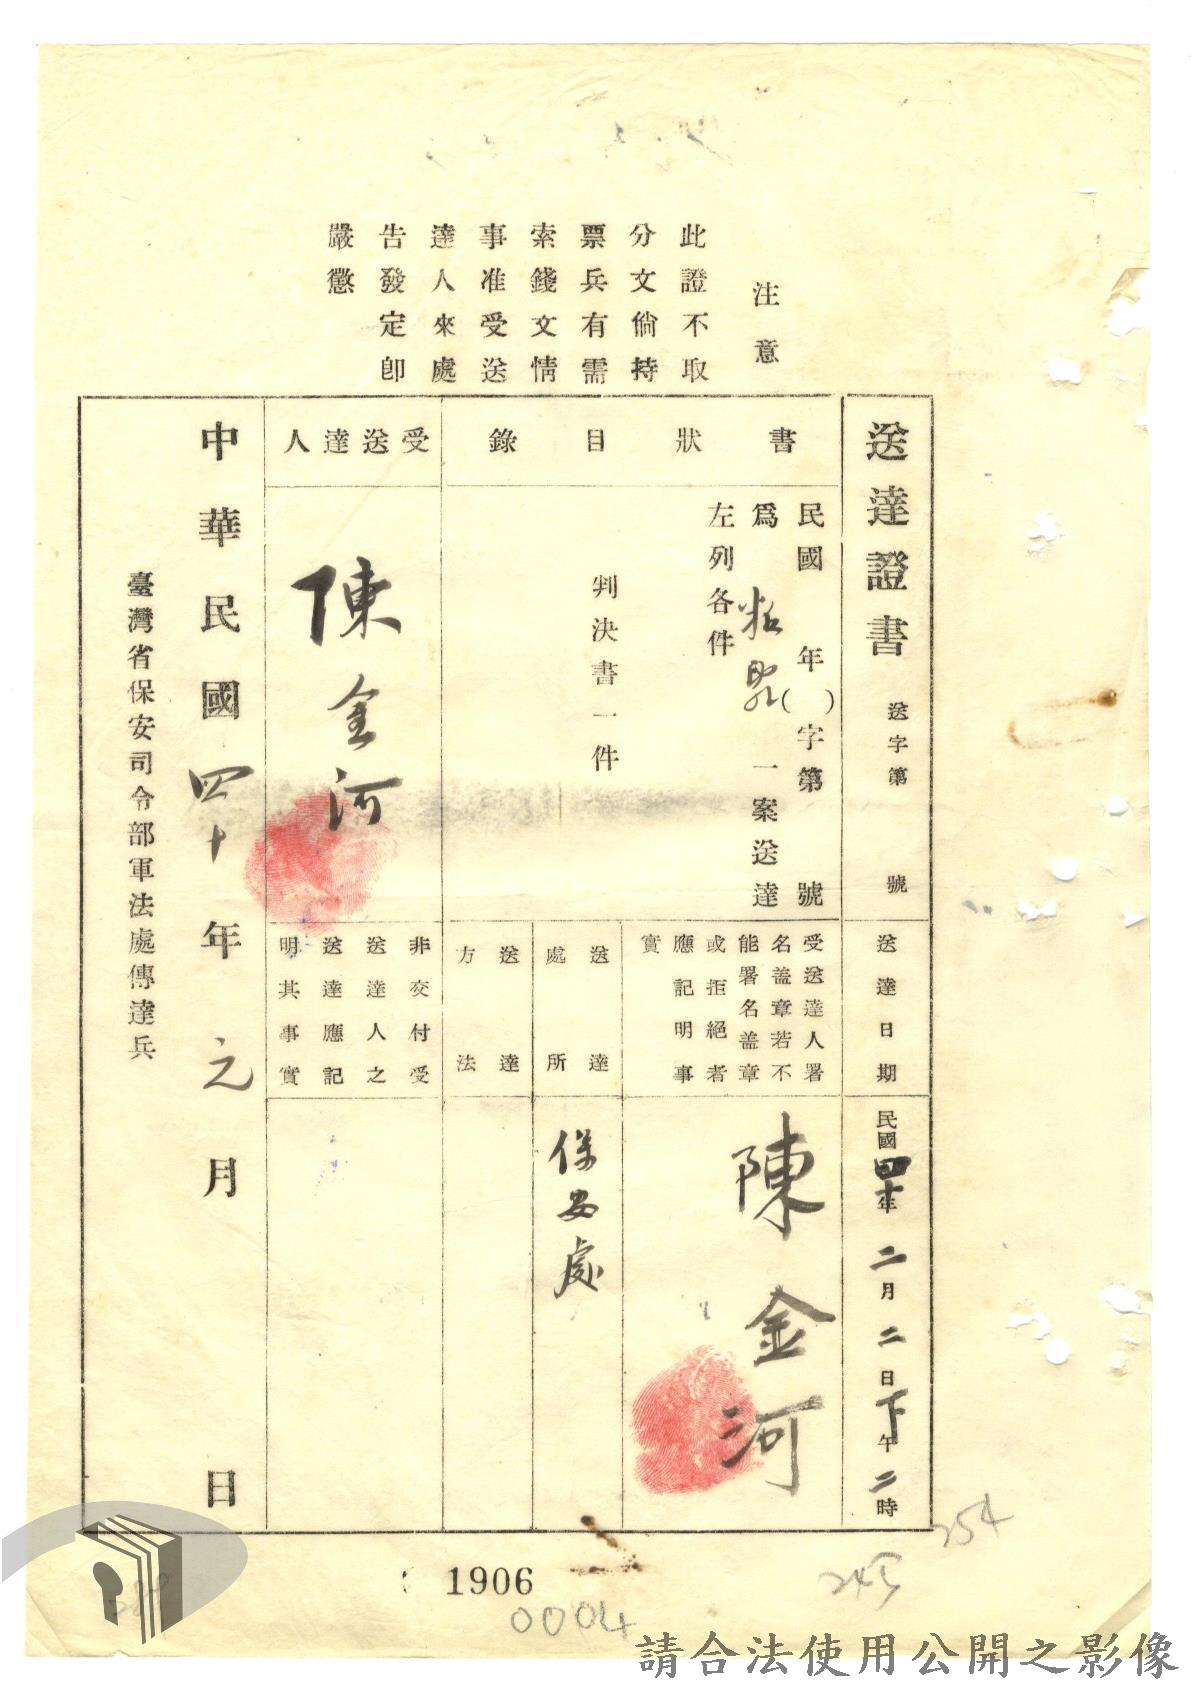 注意
此證不取
分文倘持
票兵有需
索錢文情
事准受送
達人來處
告發定卽
嚴懲
送達證書 送字第 號
送達日期
民國四十年二月二日下午二時
書狀目錄
民國 年( )字第 號
爲 一案送達
左列各件
判決書一件
受送達人署
名盖章若不
能署名盖章
或拒絕者
應記明事
實
陳金河
送達處所
保安處
送達方法
受送達人
陳金河
非交付受
送達人之
送達應記
明其事實
中華民國四十年元月 日
臺灣省保安司令部軍法處傳達兵
254
245
1906
0004
請合法使用公開之影像